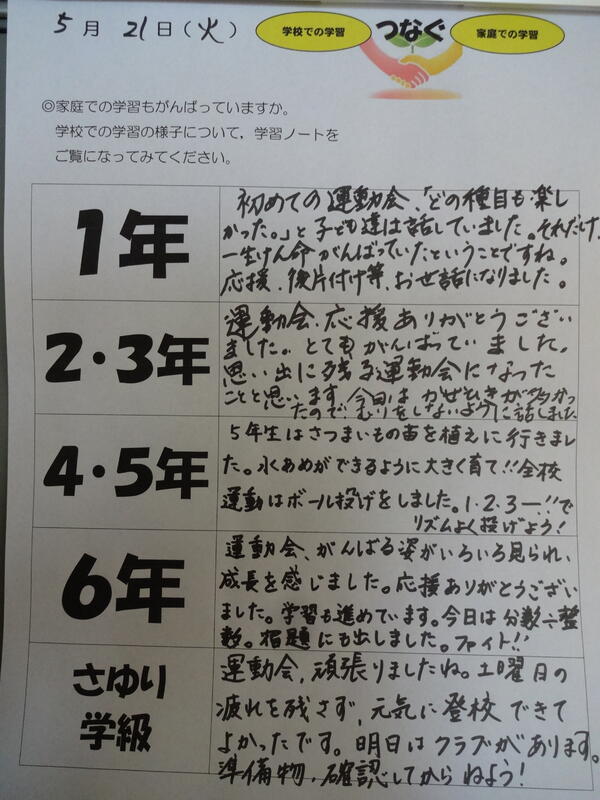 5月 21日(火)
学校での学習 つなぐ 家庭での学習
◎家庭での学習もがんばっていますか。
学校での学習の様子について，学習ノートを
ご覧になってみてください。
1年
初めての運動会、「どの種目も楽し
かった。」と子ども達は話していました。それだけ
一生けん命がんばっていたということですね。
応援、後片付け等、お世話になりました。
2・3年
運動会、応援ありがとうござい
ました。とてもがんばっていました。
思い出に残る運動会になった
ことと思います。今日はかぜひきが多かっ
たので、むりをしないように話しました
4・5年
5年生はさつまいもの苗を植えに行きまし
た。水あめができるように大きく育て!!全校
運動はボール投げをしました。1・2・3ー!!で
リズムよく投げよう!
6年
運動会、がんばる姿がいろいろ見られ、
成長を感じました。応援ありがとうござい
ました。学習も進めています。今日は分数÷整
数。宿題にも出しました。ファイト!!
さゆり
学級
運動会、頑張りましたね。土曜日の
疲れを残さず、元気に登校できて
よかったです。明日はクラブがあります。
準備物、確認してからねよう!